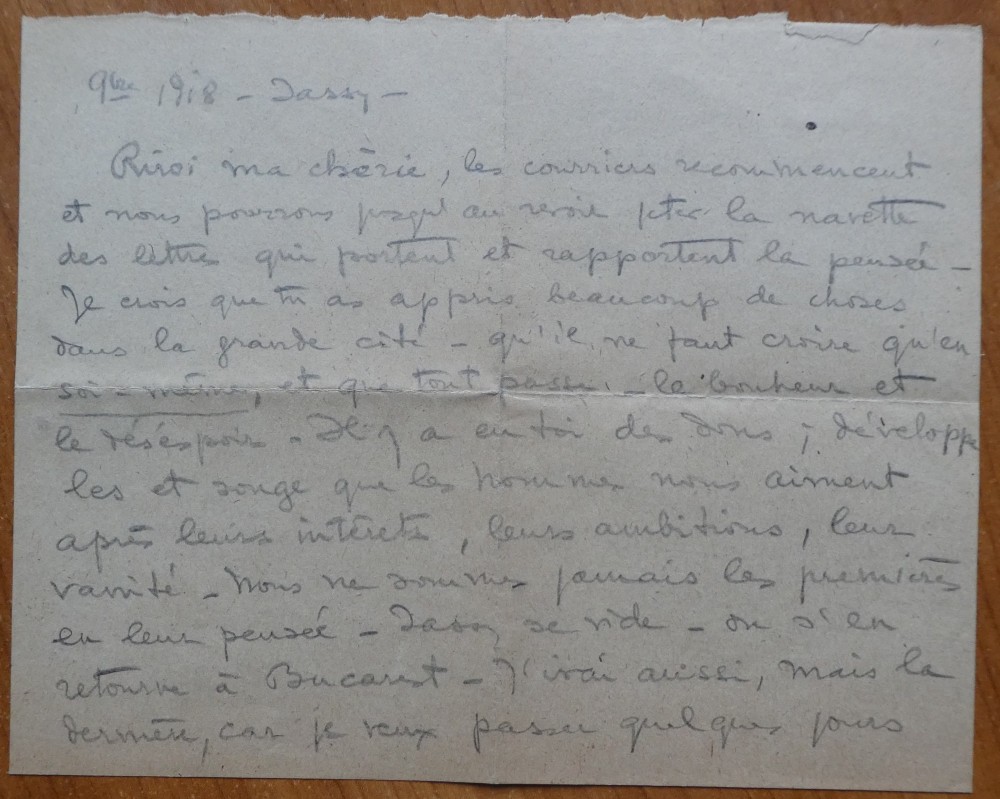 9bre 1918 - Jassy -
ma chérie, les courriers recommencent
et nous pourrons jusqu'au revoir jeter la navette
des lettres qui portent et rapportent la pensée -
Je crois que tu as appris beaucoup de choses
dans la grande cité - qu'il ne faut croire qu'en
soi-même, et que tout passe. - le bonheur et
le désespoir. Il y a en toi des dons ; développe
les et songe que les hommes nous aiment
après leurs intérêts, leurs ambitions, leur
vanité - Nous ne sommes jamais les premières
en leur pensée - Jassy se vide - on s'en
retourne à Bucarest - J'irai aussi, mais la
dernière, car je veux passer quelques jours